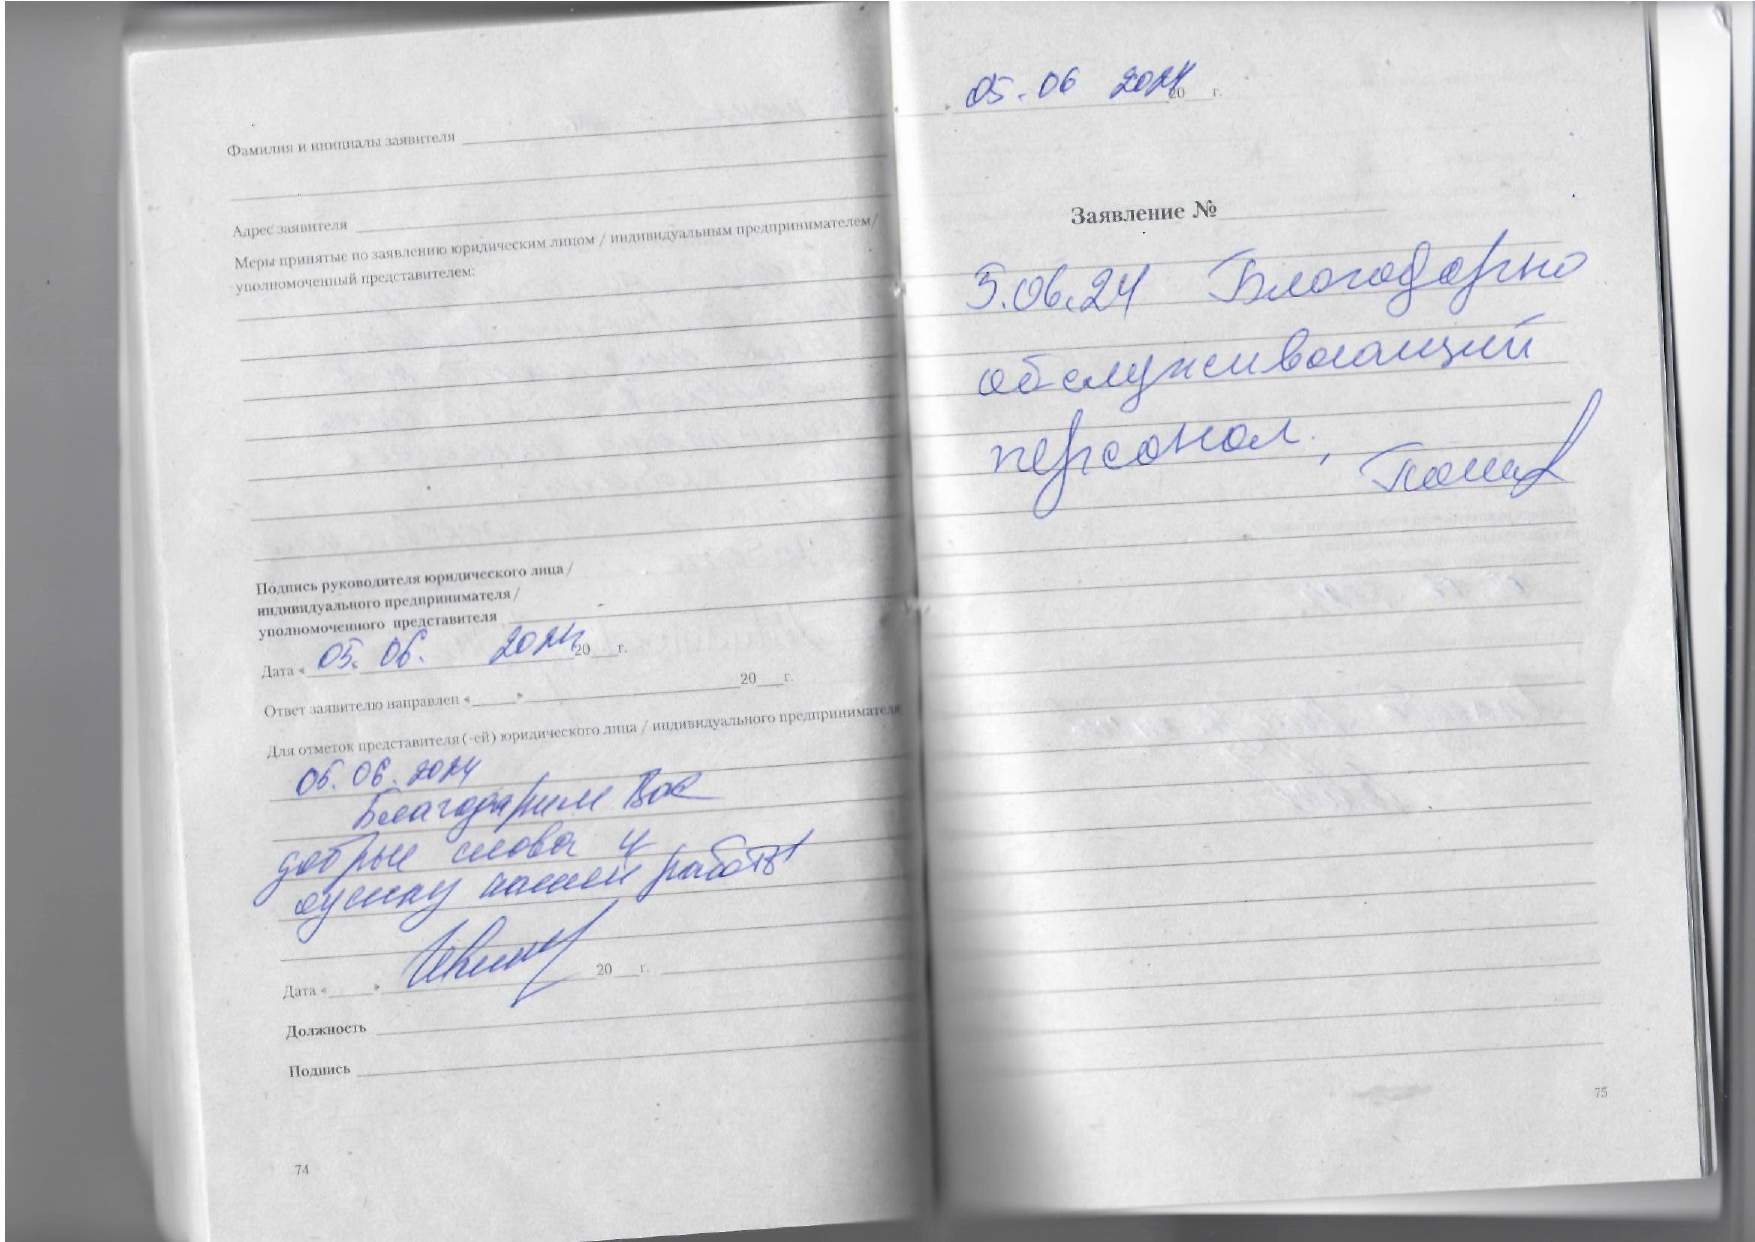 Фамилия и инициалы заявителя
Адрес заявителя
Меры принятые по заявлению юридическим лицом / индивидуальным предпринимателем/
уполномоченный представителем:
Подпись руководителя юридического лица /
индивидуального предпринимателя /
уполномоченного представителя
Дата « 05. 06. 2024 20 г.
Ответ заявителю направлен « » 20 г.
Для отметок представителя (-ей) юридического лица / индивидуального предпринимателя
05.06.2024
Благодарим Вас
добрые слова и
оценку нашей работы
Дата « » 20 г.
Должность
Подпись
74
» 05.06 2024 20 г.
Заявление №
5.06.24 Благодарно
обслуживающий
персонал,
75